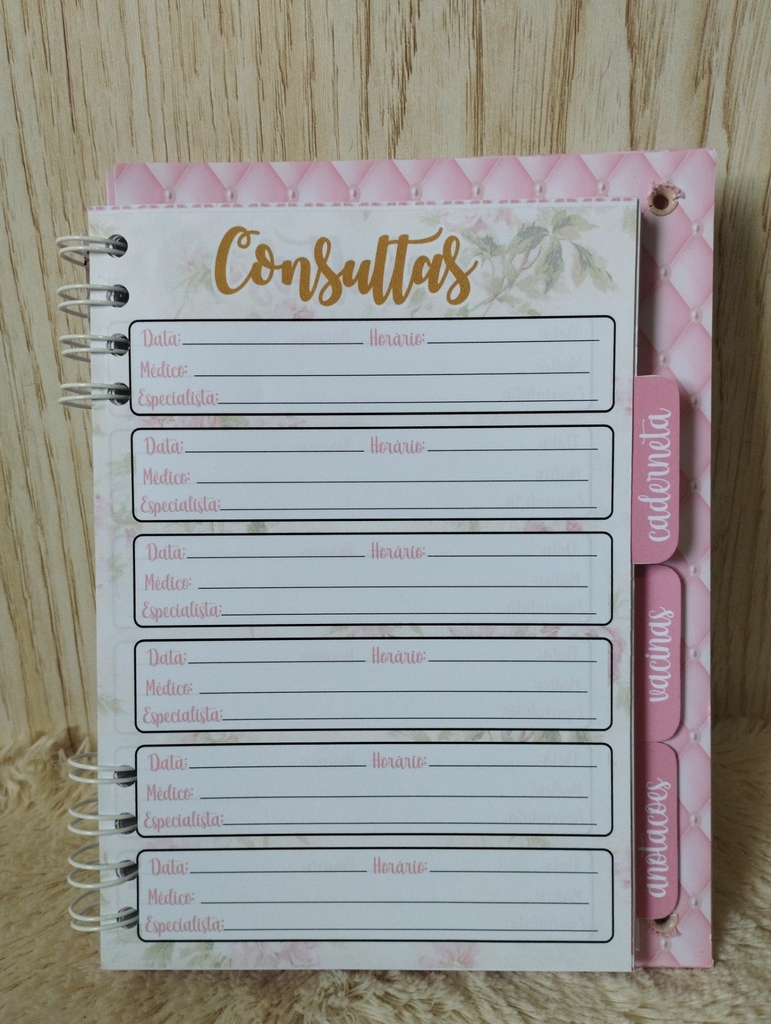 Consultas
Data: Horário:
Médico:
Especialista:
Data: Horário:
Médico:
Especialista:
Data: Horário:
Médico:
Especialista:
Data: Horário:
Médico:
Especialista:
Data: Horário:
Médico:
Especialista:
Data: Horário:
Médico:
Especialista:
caderneta
vacinas
anotacoes